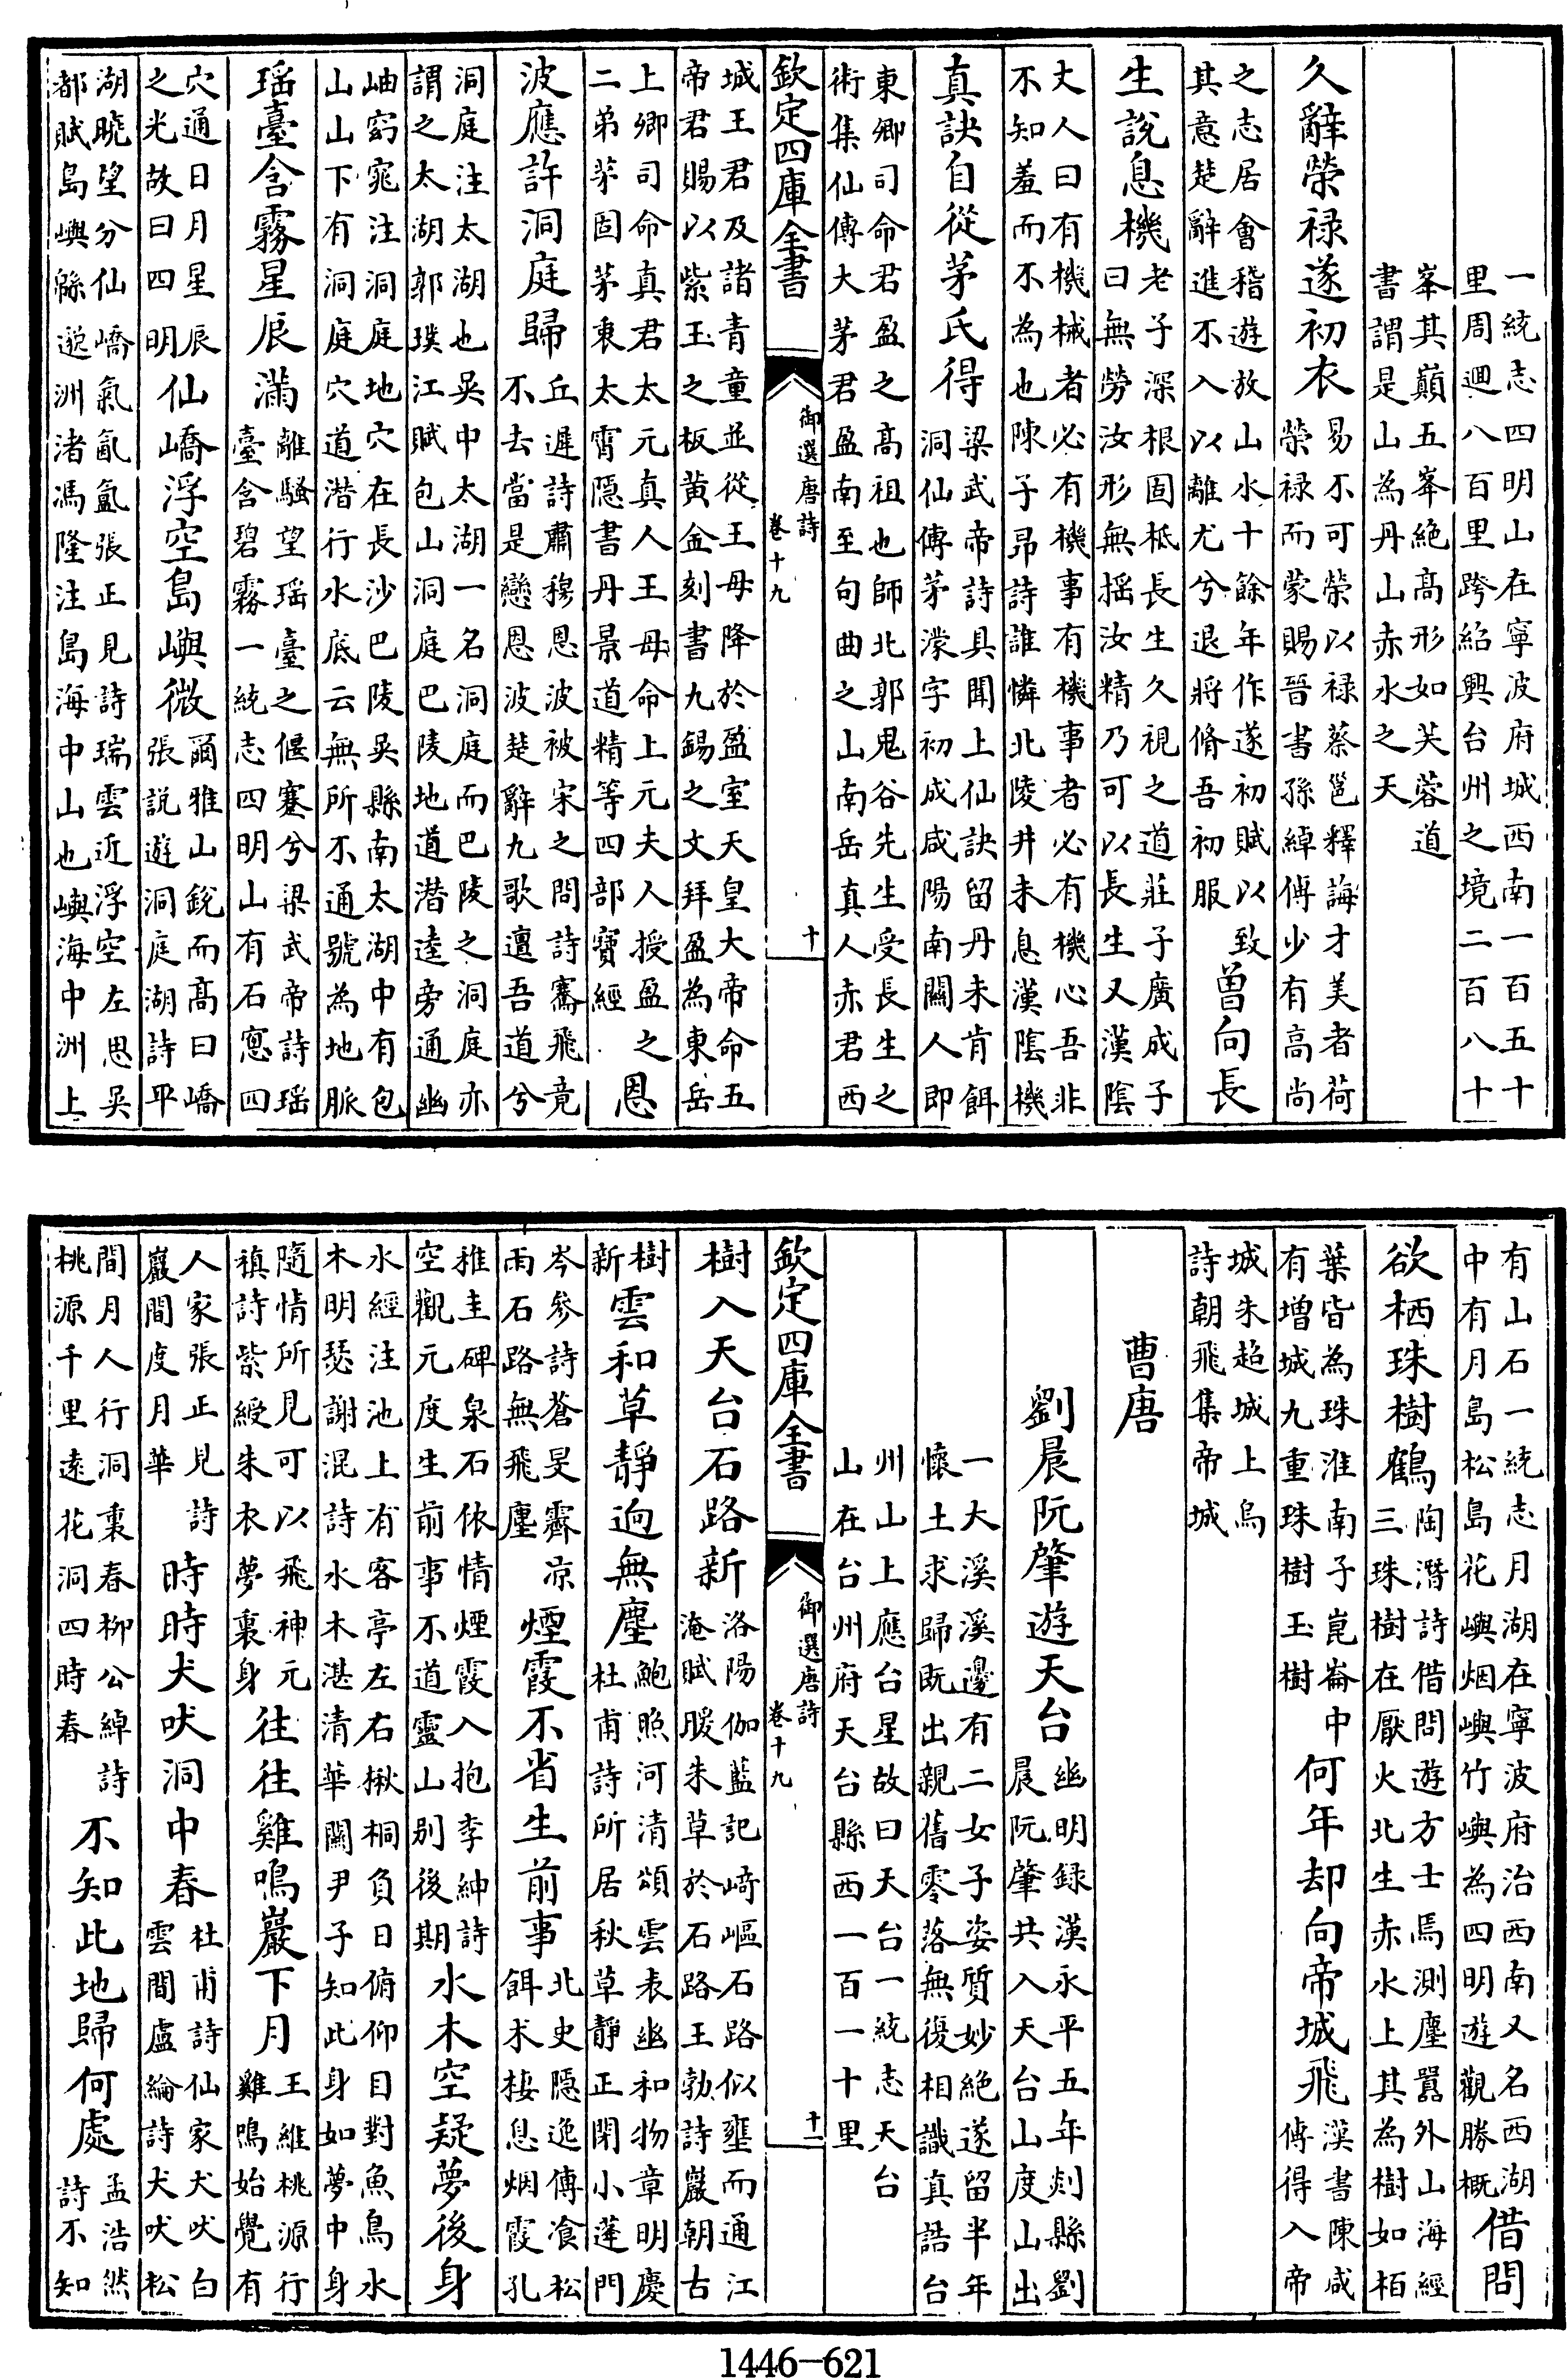 一統志四明山在寧波府城西南一百五十
里周迴八百里跨紹興台州之境二百八十
峯其巔五峯絶髙形如芙蓉道
書謂是山為丹山赤水之天
久辭榮禄遂初衣
易不可榮以禄蔡邕釋誨才美者荷
榮禄而蒙賜晉書孫綽傳少有高尚
之志居會稽遊放山水十餘年作遂初賦以致
其意楚辭進不入以離尤兮退將脩吾初服
曽向長
生說息機
老子深根固柢長生久視之道莊子廣成子
曰無勞汝形無揺汝精乃可以長生又漢陰
丈人曰有機械者必有機事有機事者必有機心吾非
不知羞而不為也陳子昻詩誰憐北陵井未息漢陰機
真訣自從茅氏得
梁武帝詩具聞上仙訣留丹未肯餌
洞仙傳茅濛字初成咸陽南關人即
東卿司命君盈之髙祖也師北郭鬼谷先生受長生之
術集仙傳大茅君盈南至句曲之山南岳真人赤君西
欽定四庫全書
御選唐詩
卷十九
十
城王君及諸青童並從王母降於盈室天皇大帝命五
帝君賜以紫玉之板黄金刻書九錫之文拜盈為東岳
上卿司命真君太元真人王母命上元夫人授盈之
二弟茅固茅衷太霄隱書丹景道精等四部寶經
恩
波應許洞庭歸
丘遲詩肅穆恩波被宋之問詩鶱飛竟
不去當是戀恩波楚辭九歌邅吾道兮
洞庭注太湖也吳中太湖一名洞庭而巴陵之洞庭亦
謂之太湖郭璞江賦包山洞庭巴陵地道潜逵旁通幽
岫窈窕注洞庭地穴在長沙巴陵吳縣南太湖中有包
山山下有洞庭穴道潜行水底云無所不通號為地脈
瑶臺含霧星辰滿
離騷望瑶臺之偃蹇兮梁武帝詩瑶
臺含碧霧一統志四明山有石窻四
穴通日月星辰
之光故曰四明
仙嶠浮空島嶼微
爾雅山銳而髙曰嶠
張說遊洞庭湖詩平
湖曉望分仙嶠氣氤氲張正見詩瑞雲近浮空左思吳
都賦島嶼緜邈洲渚馮隆注島海中山也嶼海中洲上
有山石一統志月湖在寧波府治西南又名西湖
中有月島松島花嶼烟嶼竹嶼為四明遊觀勝概
借問
欲栖珠樹鶴
陶潛詩借問遊方士焉測塵嚣外山海經
三珠樹在厭火北生赤水上其為樹如栢
葉皆為珠淮南子崑崙中
有增城九重珠樹玉樹
何年却向帝城飛
漢書陳咸
傳得入帝
城朱超城上烏
詩朝飛集帝城
曹唐
劉晨阮肇遊天台
幽明録漢永平五年剡縣劉
晨阮肇共入天台山度山出
一大溪溪邊有二女子姿質妙絶遂留半年
懷土求歸既出親舊零落無復相識真誥台
州山上應台星故曰天台一統志天台
山在台州府天台縣西一百一十里
欽定四庫全書
御選唐詩
卷十九
十一
樹入天台石路新
洛陽伽藍記﨑嶇石路似壅而通江
淹賦暖朱草於石路王勃詩巖朝古
樹
新
雲和草靜逈無塵
鮑照河清頌雲表幽和物章明慶
杜甫詩所居秋草靜正閉小蓬門
岑參詩蒼旻霽凉
雨石路無飛塵
煙霞不省生前事
北史隱逸傳飡松
餌术棲息烟霞孔
稚圭碑泉石依情煙霞入抱李紳詩
空觀元度生前事不道靈山别後期
水木空疑夢後身
水經注池上有客亭左右楸桐負日俯仰目對魚鳥水
木明瑟謝混詩水木湛清華關尹子知此身如夢中身
隨情所見可以飛神元
禛詩紫綬朱衣夢裏身
往往雞鳴巖下月
王維桃源行
雞鳴始覺有
人家張正見詩
巖間度月華
時時犬吠洞中春
杜甫詩仙家犬吠白
雲間盧綸詩犬吠松
間月人行洞裏春柳公綽詩
桃源千里遠花洞四時春
不知此地歸何處
孟浩然
詩不知
1446-621